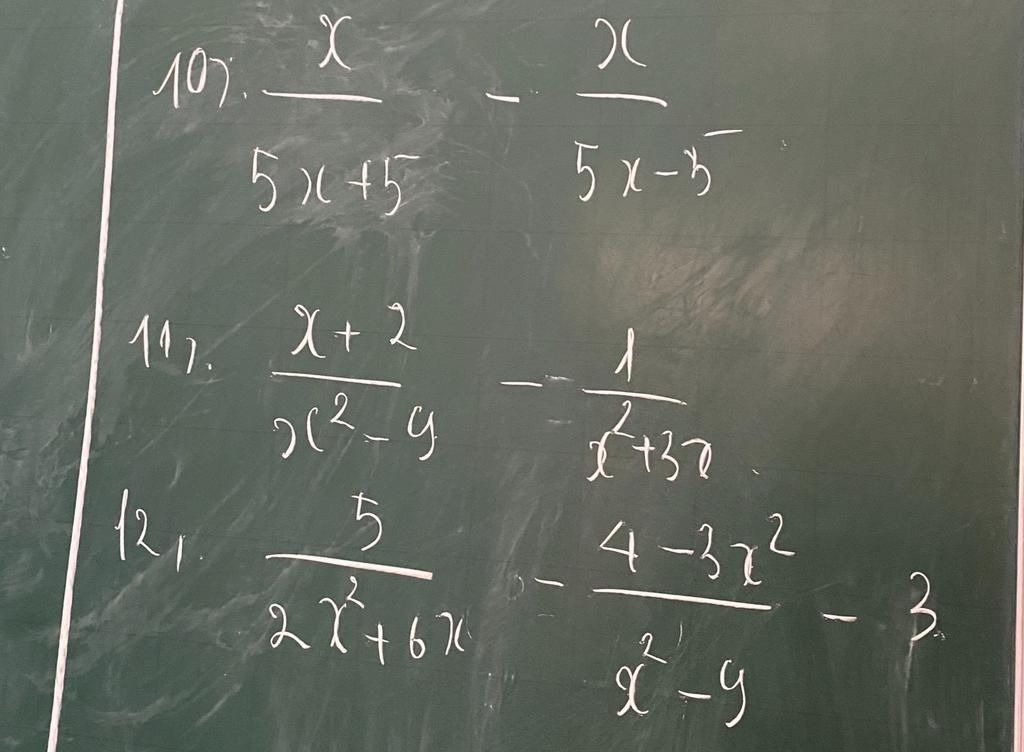 10). x/(5x+5) - x/(5x-5)
11). (x+2)/(x²-9) - 1/(x²+3x)
12). 5/(2x²+6x) - (4-3x²)/(x²-9) - 3